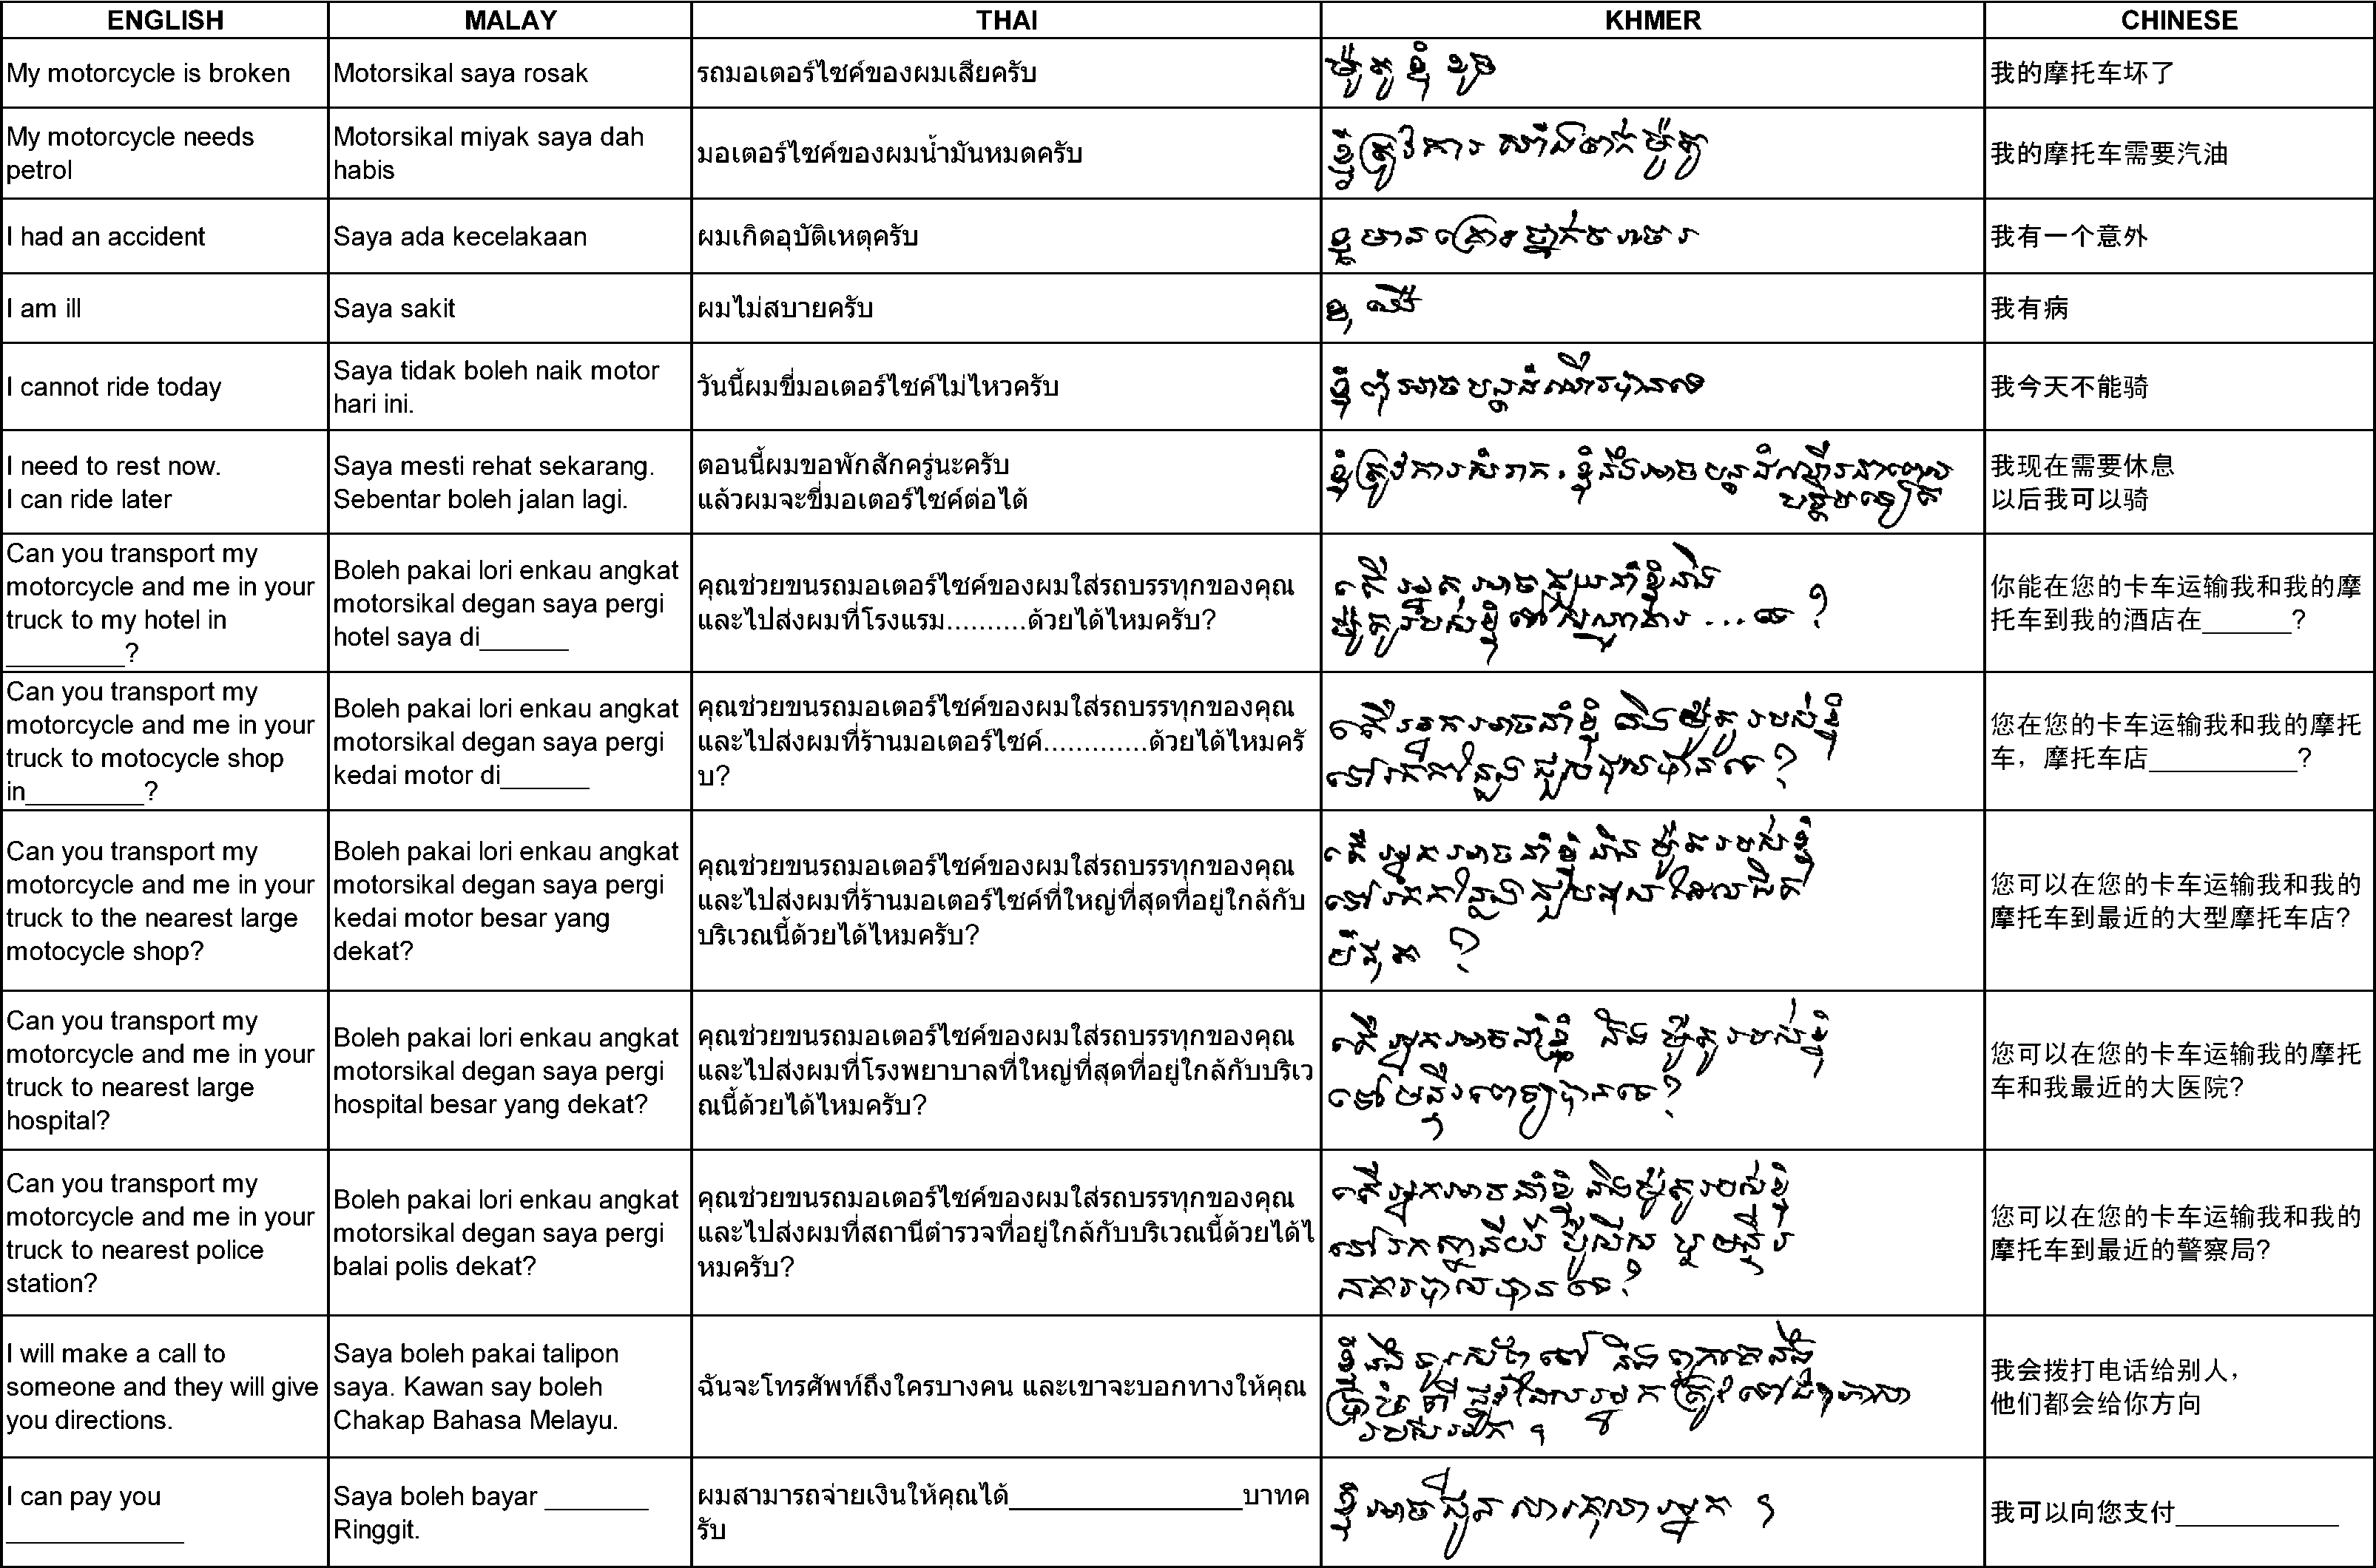 ENGLISH
MALAY
THAI
KHMER
CHINESE
My motorcycle is broken
Motorsikal saya rosak
รถมอเตอร์ไซค์ของผมเสียครับ
ម៉ូតូខ្ញុំ ខូច
我的摩托车坏了
My motorcycle needs
petrol
Motorsikal miyak saya dah
habis
มอเตอร์ไซค์ของผมน้ำมันหมดครับ
ខ្ញុំត្រូវការ សាំងចាក់ម៉ូតូ
我的摩托车需要汽油
I had an accident
Saya ada kecelakaan
ผมเกิดอุบัติเหตุครับ
ខ្ញុំមានគ្រោះថ្នាក់ចរាចរ
我有一个意外
I am ill
Saya sakit
ผมไม่สบายครับ
ខ្ញុំ ឈឺ
我有病
I cannot ride today
Saya tidak boleh naik motor
hari ini.
วันนี้ผมขี่มอเตอร์ไซค์ไม่ไหวครับ
ខ្ញុំ ពុំអាចបន្តដំណើរបានទេ
我今天不能骑
I need to rest now.
I can ride later
Saya mesti rehat sekarang.
Sebentar boleh jalan lagi.
ตอนนี้ผมขอพักสักครู่นะครับ
แล้วผมจะขี่มอเตอร์ไซค์ต่อได้
ខ្ញុំត្រូវការសំរាក, ខ្ញុំនឹងអាចបន្តដំណើរនាពេល
បន្តិចទៀត
我现在需要休息
以后我可以骑
Can you transport my
motorcycle and me in your
truck to my hotel in
________?
Boleh pakai lori enkau angkat
motorsikal degan saya pergi
hotel saya di______
คุณช่วยขนรถมอเตอร์ไซค์ของผมใส่รถบรรทุกของคุณ
และไปส่งผมที่โรงแรม..........ด้วยได้ไหมครับ?
តើ អ្នក អាចជួយនាំខ្ញុំនិង
ម៉ូតូរបស់ខ្ញុំ ទៅសណ្ឋាគារ ... ទេ ?
你能在您的卡车运输我和我的摩
托车到我的酒店在______?
Can you transport my
motorcycle and me in your
truck to motocycle shop
in________?
Boleh pakai lori enkau angkat
motorsikal degan saya pergi
kedai motor di______
คุณช่วยขนรถมอเตอร์ไซค์ของผมใส่รถบรรทุกของคุณ
และไปส่งผมที่ร้านมอเตอร์ไซค์.............ด้วยได้ไหมครั
บ?
តើ អ្នកអាចនាំខ្ញុំ និងម៉ូតូរបស់ខ្ញុំ
ទៅរកកន្លែង ជួសជុលបានទេ?
您在您的卡车运输我和我的摩托
车，摩托车店__________?
Can you transport my
motorcycle and me in your
truck to the nearest large
motocycle shop?
Boleh pakai lori enkau angkat
motorsikal degan saya pergi
kedai motor besar yang
dekat?
คุณช่วยขนรถมอเตอร์ไซค์ของผมใส่รถบรรทุกของคุณ
และไปส่งผมที่ร้านมอเตอร์ไซค์ที่ใหญ่ที่สุดที่อยู่ใกล้กับ
บริเวณนี้ด้วยได้ไหมครับ?
តើ អ្នក អាច នាំខ្ញុំ និង ម៉ូតូរបស់ខ្ញុំ
ទៅរកកន្លែង ជួសជុល ដែលជិត
បំផុត ?
您可以在您的卡车运输我和我的
摩托车到最近的大型摩托车店?
Can you transport my
motorcycle and me in your
truck to nearest large
hospital?
Boleh pakai lori enkau angkat
motorsikal degan saya pergi
hospital besar yang dekat?
คุณช่วยขนรถมอเตอร์ไซค์ของผมใส่รถบรรทุกของคุณ
และไปส่งผมที่โรงพยาบาลที่ใหญ่ที่สุดที่อยู่ใกล้กับบริเว
ณนี้ด้วยได้ไหมครับ?
តើអ្នកអាចនាំខ្ញុំ និង ម៉ូតូរបស់ខ្ញុំ
ទៅមន្ទីរពេទ្យបានទេ?
您可以在您的卡车运输我的摩托
车和我最近的大医院?
Can you transport my
motorcycle and me in your
truck to nearest police
station?
Boleh pakai lori enkau angkat
motorsikal degan saya pergi
balai polis dekat?
คุณช่วยขนรถมอเตอร์ไซค์ของผมใส่รถบรรทุกของคุณ
และไปส่งผมที่สถานีตำรวจที่อยู่ใกล้กับบริเวณนี้ด้วยได้ไ
หมครับ?
តើអ្នកអាចនាំខ្ញុំ និងម៉ូតូរបស់ខ្ញុំ
ទៅរក ប៉ូលីស ឬ មន្ទីរ
នគរបាលបានទេ?
您可以在您的卡车运输我和我的
摩托车到最近的警察局?
I will make a call to
someone and they will give
you directions.
Saya boleh pakai talipon
saya. Kawan say boleh
Chakap Bahasa Melayu.
ฉันจะโทรศัพท์ถึงใครบางคน และเขาจะบอกทางให้คุณ
ខ្ញុំ នឹង ទូរស័ព្ទ ទៅ និង ពួកគេនឹង
ប្រាប់ ពី ផ្លូវដែលអ្នក ត្រូវ ទៅ
របស់អ្នក ។
我会拨打电话给别人，
他们都会给你方向
I can pay you
____________
Saya boleh bayar _______
Ringgit.
ผมสามารถจ่ายเงินให้คุณได้________________บาทค
รับ
ខ្ញុំអាចជូន អ្នក ។
我可以向您支付___________